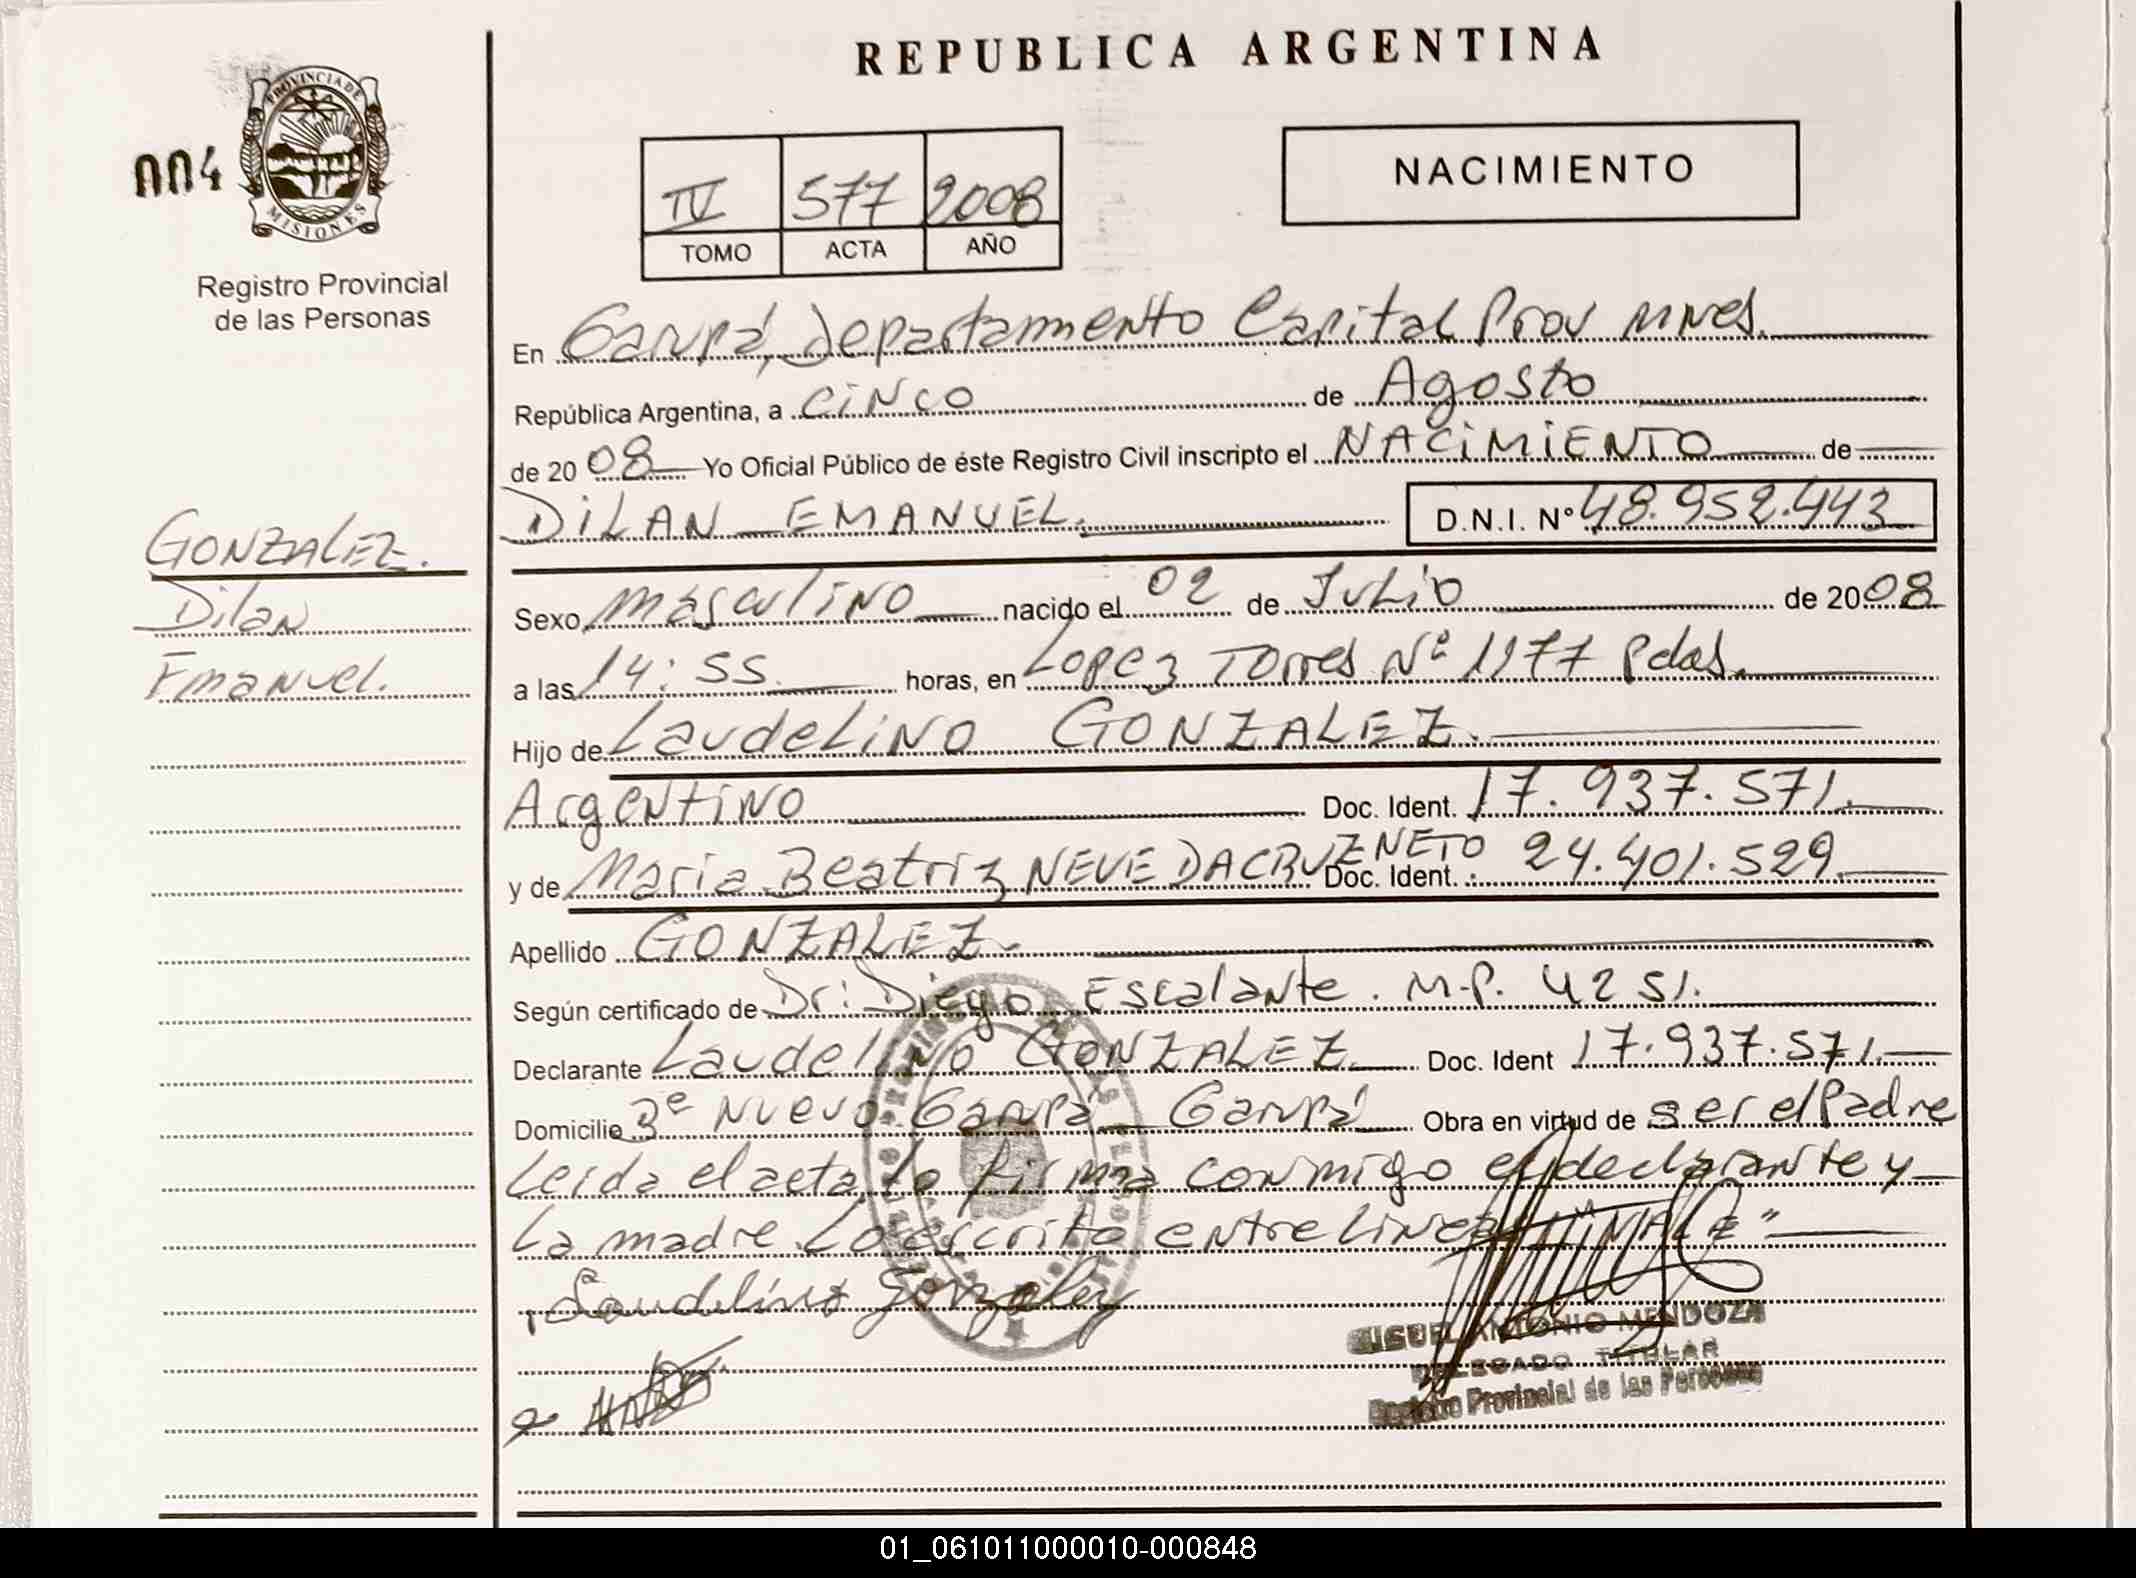 REPUBLICA ARGENTINA
PROVINCIA DE
MISIONES
004
Registro Provincial
de las Personas
IV 577 2008
TOMO ACTA AÑO
NACIMIENTO
En Garupá, Departamento Capital Prov Mnes.
República Argentina, a CINCO de Agosto
de 2008 Yo Oficial Público de éste Registro Civil inscripto el NACIMIENTO de
DILAN EMANUEL. D.N.I. Nº 48.952.443
GONZALEZ.
Dilan
Emanuel.
Sexo masculino nacido el 02 de Julio de 2008
a las 14:55 horas, en Lopez Torres Nº 1177 Pdas.
Hijo de Laudelino GONZALEZ.
Argentino Doc. Ident. 17.937.571.
y de Maria Beatriz NEVE DACRUZ NETO Doc. Ident. 24.401.529
Apellido GONZALEZ.
Según certificado de Dr: Diego Escalante. M.P. 4251.
Declarante Laudelino GONZALEZ Doc. Ident 17.937.571.
Domicilio Bº Nuevo Garupá Garupá Obra en virtud de ser el Padre
Leida el acta, la firma conmigo el declarante y
La madre. Lo escrito entre Linea
Laudelino Gonzalez
MIGUEL ANTONIO MENDOZA
DELEGADO TITULAR
Registro Provincial de las Personas
01_061011000010-000848